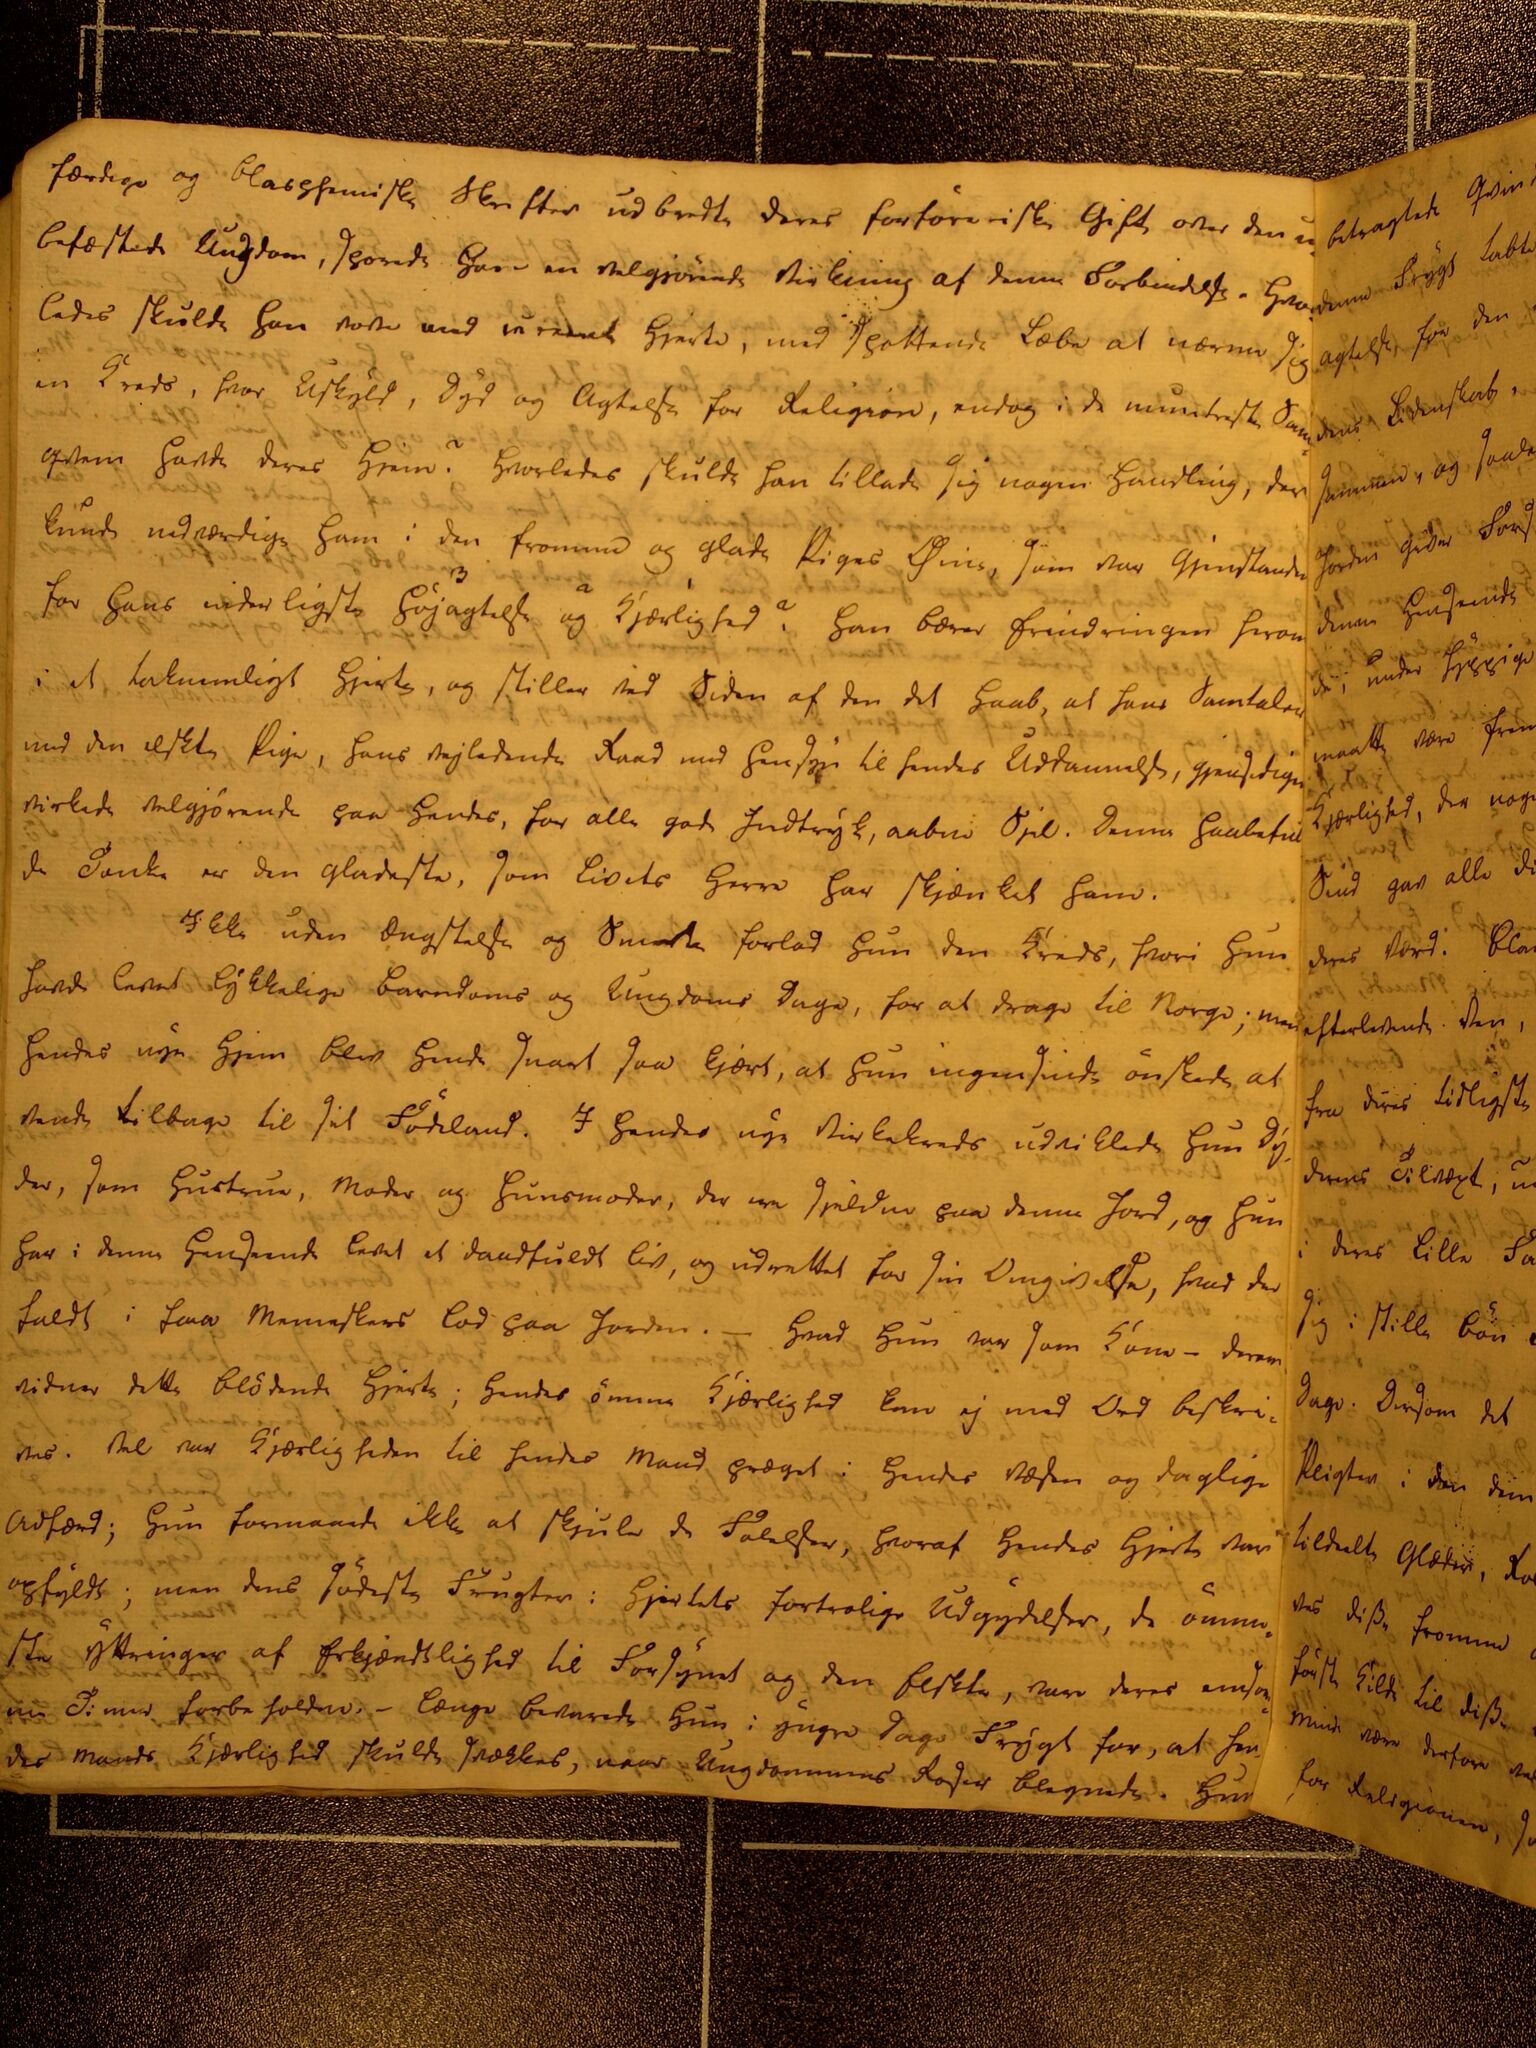 færdige og blasphemiske Skrifter udbredte deres forföreriske Gift over den u-
befæstede Ungdom, sporede han en velgjörende Virkning af denne Forbindelse. Hvor-
ledes skulde han vove med ureent Hjerte, med spottende Læbe at nærme sig
en Kreds, hvor Uskyld, Dyd og Agtelse for Religion, endog i de muntreste Sam-
qvem havde deres Hjem? Hvorledes skulde han tillade sig nogen Handling, der
kunde nedværdige ham i den fromme og glade Piges Øine, som var Gjenstanden
for hans inderligste Höjagtelse og Kjærlighed? Han bærer Erindringen herom
i et taknemligt Hjerte, og stiller ved Siden af den det Haab, at hans Samtaler
med den elskte Pige, hans vejledende Raad med Hensyn til hendes Uddannelse, gjensidigen
virkede velgjörende paa Hendes, for alle gode Indtryk, aabne Sjel. Denne haabeful-
de Tanke er den gladeste, som Livets Herre har skjænket ham.
Ikke uden Ængstelse og Smerte forlod Hun den Kreds, hvori Hun
havde levet lykkelige Barndoms og Ungdoms Dage, for at drage til Norge; men
Hendes nye Hjem blev Hende snart saa kjært, at Hun ingensinde önskede at
vende tilbage til sit Födeland. I Hendes nye Virkekreds udviklede Hun Dy-
der, som Hustrue, Moder og Huusmoder, der ere sjeldne paa denne Jord, og Hun
har i denne Henseende levet et daadfuldt Liv, og udrettet for sin Omgivelse, hvad der
faldt i faa Menneskers Lod paa Jorden. – Hvad Hun var som Kone – derom
vidner dette blödende Hjerte; Hendes ömme Kjærlighed kan ej med Ord beskri-
ves. Vel var Kjærligheden til hendes Mand præget i Hendes Væsen og daglige
Adfærd; Hun formaaede ikke at skjule de Fölelser, hvoraf Hendes Hjerte var
opfyldt; men dens södeste Frugter: Hjertets fortrolige Udgydelser, de ömme-
ste Yttringer af Erkjendtlighed til Forsynet og den Elskte, vare deres eenso-
me Timer forbeholdne. – Længe bevarede Hun i yngre Dage Frygt for, at hen-
des Mands Kjærlighed skulde svækkes, naar Ungdommens Roser blegnede. Hun
betragtede Qvin
denne Frygt tabte
agtelse for den
dens Lidenskab,
sammen, og saale
Jorden giver Fors
denne Henseende
de, under hyppige
maatte være frem
Kjærlighed, der noge
Sind gav alle Di
deres Værd. Blan
efterlevende Ven,
fra deres tidligste
derens Tilvæxt, u
i deres lille Fa
sig i stille Bön
Dage. Dersom det
Pligter i den dem
tildeelte Glæder, Ro
ves disse fromme
förste Kilde til disse
Minde være derfore vel
for Religionen, so